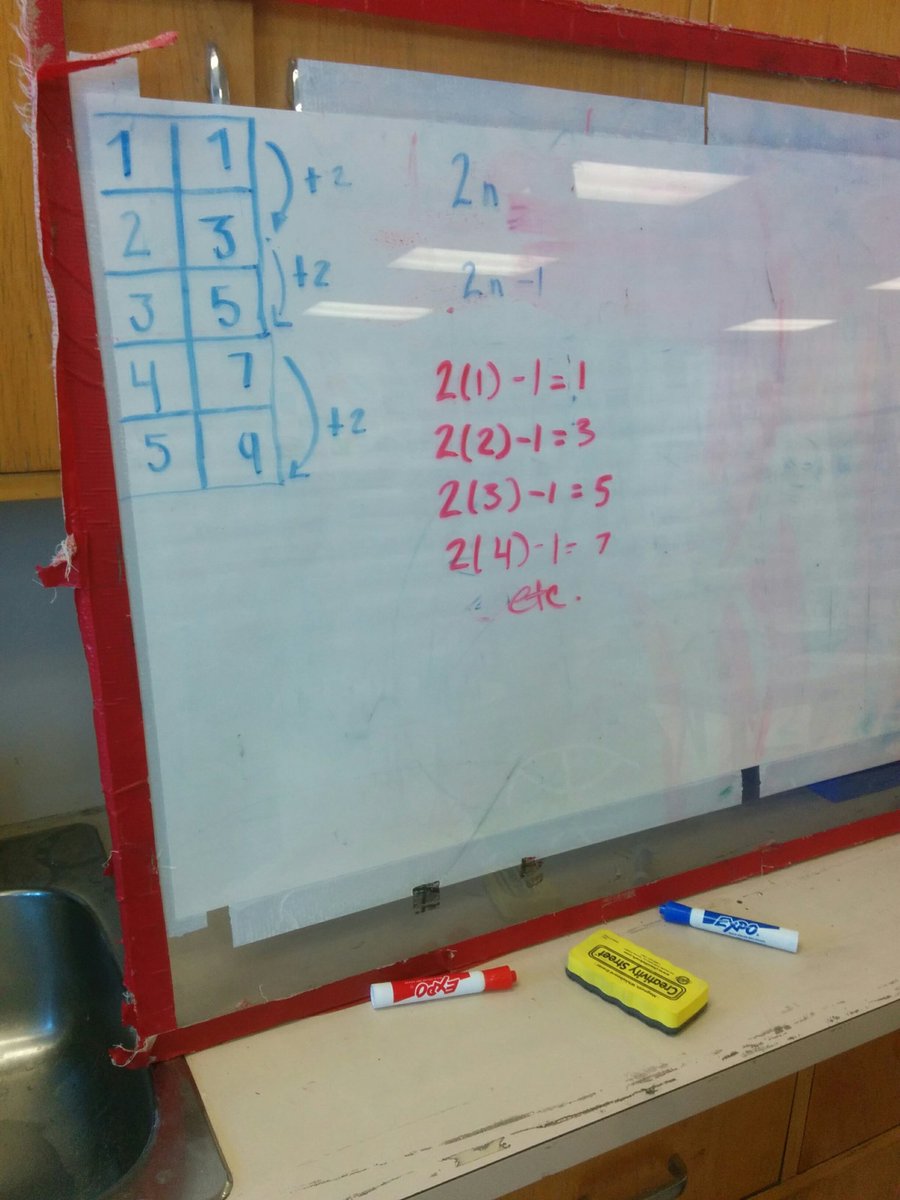 1 1
+2
2 3
+2
3 5
4 7
+2
5 9
2n
2n-1
2(1)-1=1
2(2)-1=3
2(3)-1=5
2(4)-1=7
etc.
EXPO
Creativity Street
EXPO